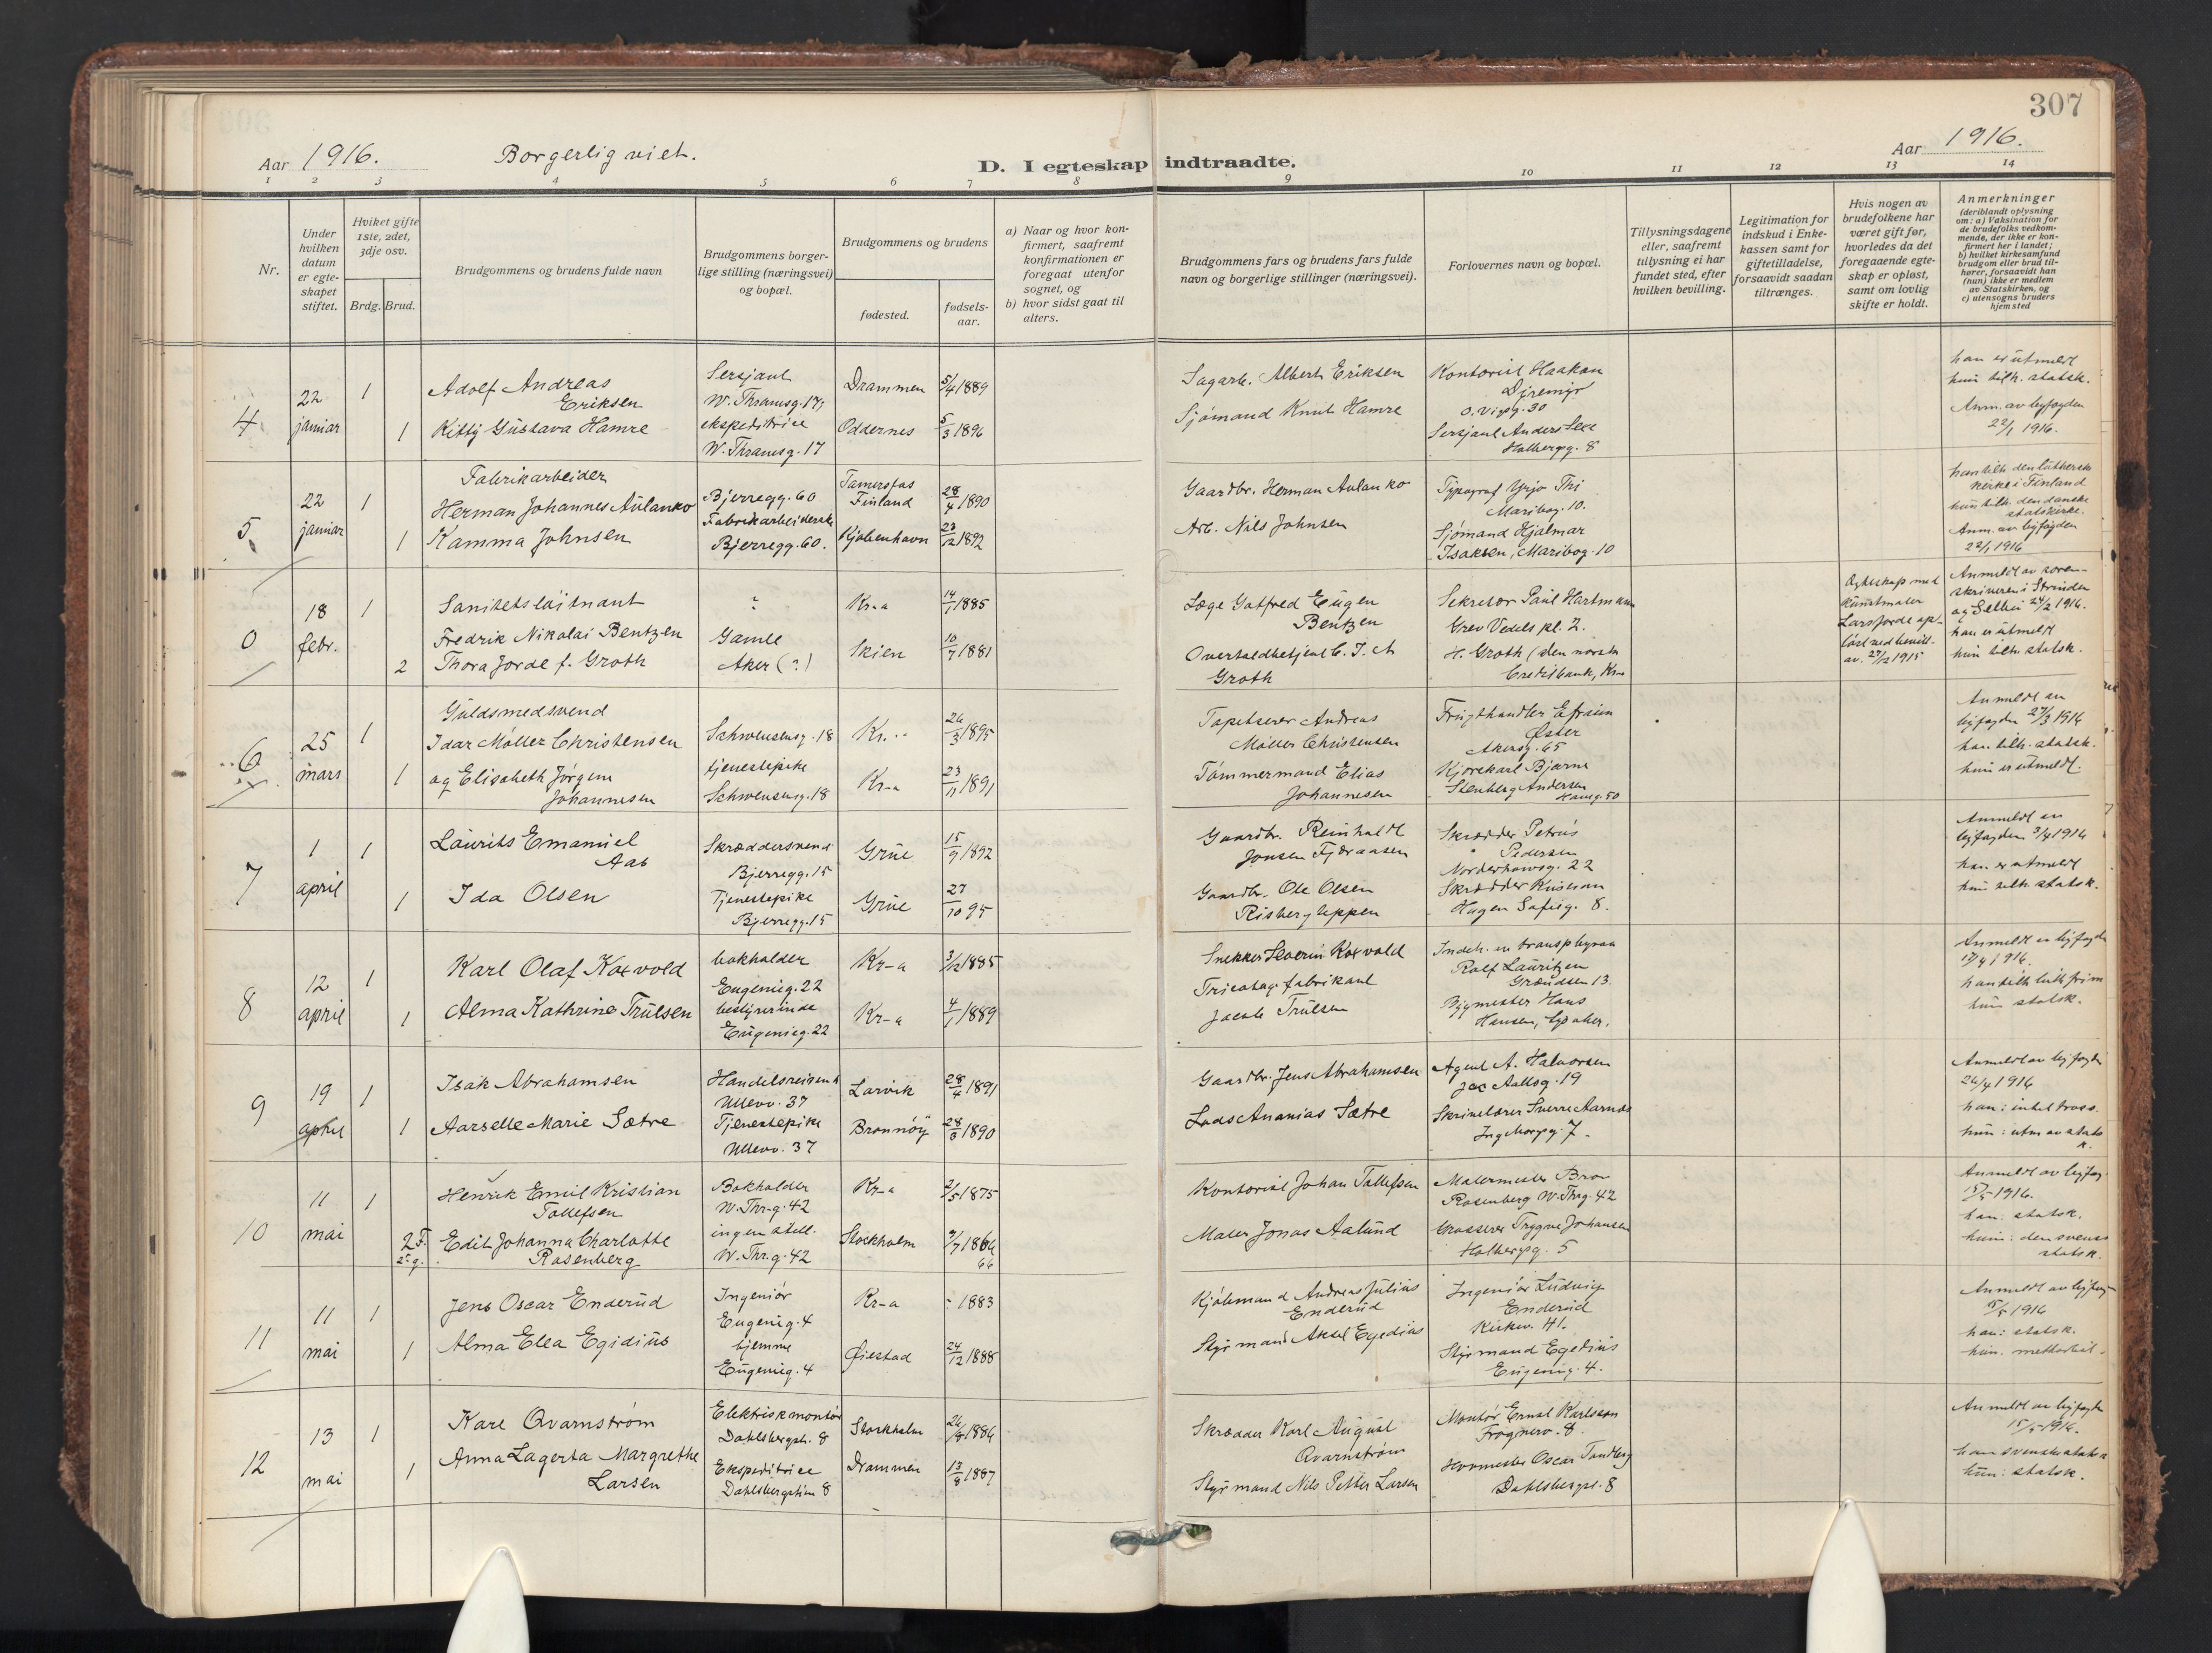 307
Aar 1916.
Borgerlig viet.
D. I egteskap indtraadte.
Aar 1916.
1 2 3 4 5 6 7 8 9 10 11 12 13 14
Nr.
Under hvilken datum er egte-skapet stiftet.
Hviket gifte 1ste, 2det, 3dje osv.
Brdg. Brud.
Brudgommens og brudens fulde navn
Brudgommens borger-lige stilling (næringsvei) og bopæl.
Brudgommens og brudens
fødested.
fødsels-aar.
a) Naar og hvor kon-firmert, saafremt konfirmationen er foregaat utenfor sognet, og
b) hvor sidst gaat til alters.
Brudgommens fars og brudens fars fulde navn og borgerlige stillinger (næringsvei).
Forlovernes navn og bopæl.
Tillysningsdagene eller, saafremt tillysning ei har fundet sted, efter hvilken bevilling.
Legitimation for indskud i Enke-kassen samt for giftetilladelse, forsaavidt saadan tiltrænges.
Hvis nogen av brudefolkene har været gift før, hvorledes da det foregaaende egte-skap er opløst, samt om lovlig skifte er holdt.
Anmerkninger
(deriblandt oplysning om: a) Vaksination for de brudefolks vedkom-mende, der ikke er kon-firmert her i landet; b) hvilket kirkesamfund brudgom eller brud til-hører, forsaavidt han (hun) ikke er medlem av Statskirken, og c) utensogns bruders hjemsted
4
22 januar
1
Adolf Andreas Eriksen
Sersjant
W. Thranesg. 17
Drammen
5/4 1889
1
Kitty Gustava Hamre
ekspeditrice
W. Thranesg. 17
Oddernes
5/3 1896
Sagarb. Albert Eriksen
Sjömand Knut Hamre
Kontorist Haakon
Sersjant Anders
Holbergg. 8
han er utmeldt
hun tilh. statsk.
Anm. av byfogden
22/1 1916.
5
22 januar
1
Fabrikarbeider
Herman Johannes Aulanko
Bjerregg. 60
Tamersfas
Finland
28/4 1890
1
Kamma Johnsen
Fabrikarbeiderske
Bjerregg. 60.
Kjøbenhavn
23/12 1892
Gaardbr. Herman Aulanko
Arb. Nils Johnsen
Typograf Yrjo
Maribog. 10.
Sjømand Hjalmar
Isaksen, Maribog. 10
han tilh. den lutherske
kirke i Finland
hun tilh. den danske
statskirke.
Anm. av byfogden
22/1 1916
0
18 febr.
1
Sanitetsløitnant
Fredrik Nikolai Bentzen
?
Kr-a
14/1 1885
2
Thora Jorde f. Groth
Gamle
Aker (?)
Skien
10/7 1881
Læge Gotfred Eugen
Bentzen
Overtoldbetjent C. J. A
Groth
Sekretær Paul Hartmann
Grev Vedels pl. 2.
H. Groth (den norske
Creditbank, Kra
Egteskap med
kunstmaler
Lars Jorde op-
løst ved bevill.
av 27/12 1915
Anmeldt av soren-
skriveren i Strinden
og Selbu 24/2 1916.
han er utmeldt
hun tilh. statsk.
6
25 mars
1
Guldsmedsvend
Idar Møller Christensen
Schwensensg. 18
Kr.
26/3 1895
1
og Elisabeth Jörgine
Johannesen
tjenestepike
Schwensensg. 18
Kr-a
23/11 1891
Tapetserer Andreas
Møller Christensen
Tömmermand Elias
Johannesen
Frugthandler Efraim
Øster
Akersg. 65
Kjørekarl Bjarne
Stenberg Andersen
Hausg. 50
Anmeldt av
byfogden 27/3 1916
han tilh. statsk.
hun er utmeldt.
7
1 april
1
Laurits Emanuel
Aas
Skræddersvend
Bjerregg. 15
Grue
15/9 1892
1
Ida Olsen
Tjenestepike
Bjerregg. 15
Grue
27/10 95
Gaardbr. Reinholdt
Jonsen Fjæraasen
Gaardbr. Ole Olsen
Risbergleppen
Skrædder Petrus
Pedersen
Norderhovsg. 22
Skrædder Kristian
Hagen Sofieg. 8.
Anmeldt av
byfogden 3/4 1916
han er utmeldt
hun tilh. statsk.
8
12 april
1
Karl Olaf Koxvold
bokholder
Eugenieg. 22
Kr-a
3/12 1885
1
Alma Kathrine Trulsen
bestyrerinde
Eugenieg. 22
Kr-a
4/1 1889
Snekker Severin Koxvold
Tricotagefabrikant
Jacob Trulsen
Rolf Lauritzen
Grændsen 13.
Bygmester Hans
Hansen,
Anmeldt av byfogden
1916.
hun statsk.
9
19 april
1
Isak Abrahamsen
Handelsreisende
Ullevv. 37
Larvik
28/4 1891
1
Aarselle Marie Sætre
Tjenestepike
Ullevv. 37
Brønnöy
28/3 1890
Gaardbr. Jens Abrahamsen
Lods Ananias Sætre
Agent A. Halvorsen
Jac Aallsg. 19
Skrivelærer Sverre Aarnes
Ingeborgg. 7.
Anmeldt av byfogden
26/4 1916
han: intet tross.
hun: utm av stats
k.
10
11 mai
1
Henrik Emil Kristian
Tollefsen
Bokholder
W. Thr.g. 42
Kr-a
2/5 1875
2 F.
2 g.
Edit Johanna Charlotte
Rosenberg
ingen still.
W. Thr.g. 42
Stockholm
9/7 1864
66
Kontorist Johan Tollefsen
Maler Jonas Aalund
Malermester Bror
Rosenberg W. Thrg. 42
Grosserer Trygve Johansen
Holbergg. 5
Anmeldt av byfog.
15/5 1916.
han: statsk.
hun: den svenske
statsk.
11
11 mai
1
Jens Oscar Enderud
Ingeniör
Eugenieg. 4
Kr-a
- 1883
1
Alma Elea Egidius
hjemme
Eugenieg. 4
Øiestad
24/12 1888
Kjöbmand Andreas Julius
Enderud
Styrmand Aksel Egedius
Ingeniör Ludvig
Enderud
Kirkev. 41.
Styrmand Egedius
Eugenieg. 4.
Anmeldt av byfog
15/5 1916
han: statsk.
hun. methodist.
12
13 mai
1
Karl Qvarnström
Elektriskmontör
Dahlsbergst. 8
Stockholm
26/8 1886
1
Anna Lagerta Margrethe
Larsen
Ekspeditrice
Dahlsbergstien 8
Drammen
13/8 1887
Skrædder Karl August
Qvarnström
Styrmand Nils Petter Larsen
Montör Ernst Karlsson
Frognerv. 8.
Oscar Tandberg
Dahlsbergst. 8
Anmeldt av byfogden
15/5 1916.
han svenske statsk
hun: statsk.